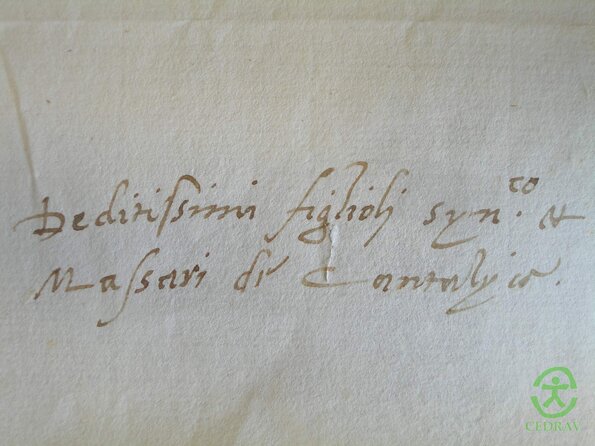 Deditissimi figlioli syn.co et
Massari de Cantalyce.
CEDRAV